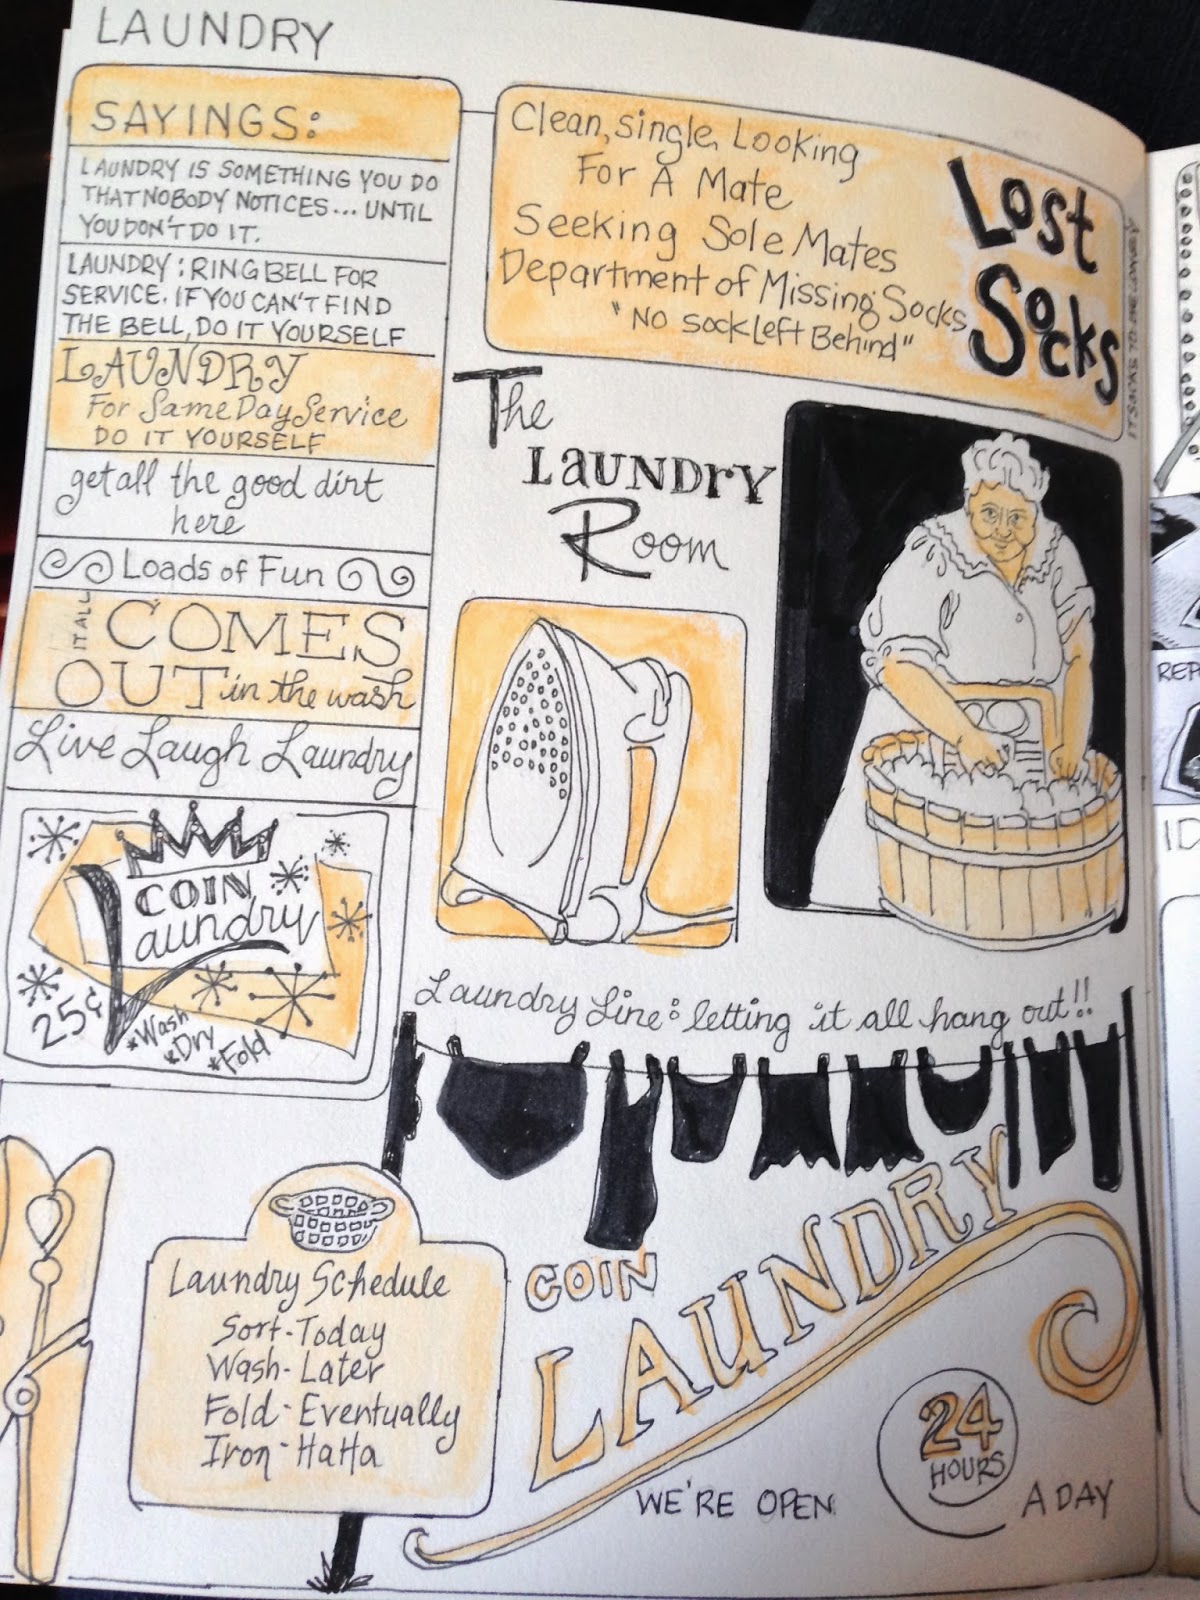 LAUNDRY
SAYINGS:
LAUNDRY IS SOMETHING YOU DO
THAT NOBODY NOTICES... UNTIL
YOU DON'T DO IT.
LAUNDRY: RING BELL FOR
SERVICE. IF YOU CAN'T FIND
THE BELL, DO IT YOURSELF
LAUNDRY
For Same Day Service
DO IT YOURSELF
get all the good dirt
here
Loads of Fun
IT ALL COMES
OUT in the wash
Live Laugh Laundry
COIN
Laundry
25¢
*Wash
*Dry
*Fold
Clean, single, Looking
For A Mate
Seeking Sole Mates
Department of Missing Socks
"No Sock Left Behind"
Lost
Socks
IT SOCKS TO BE
The
LAUNDrY
Room
Laundry Line: letting it all hang out!!
Laundry Schedule
Sort-Today
Wash-Later
Fold-Eventually
Iron-HaHa
COIN
LAUNDRY
WE'RE OPEN
24
HOURS
A DAY
REP
ID